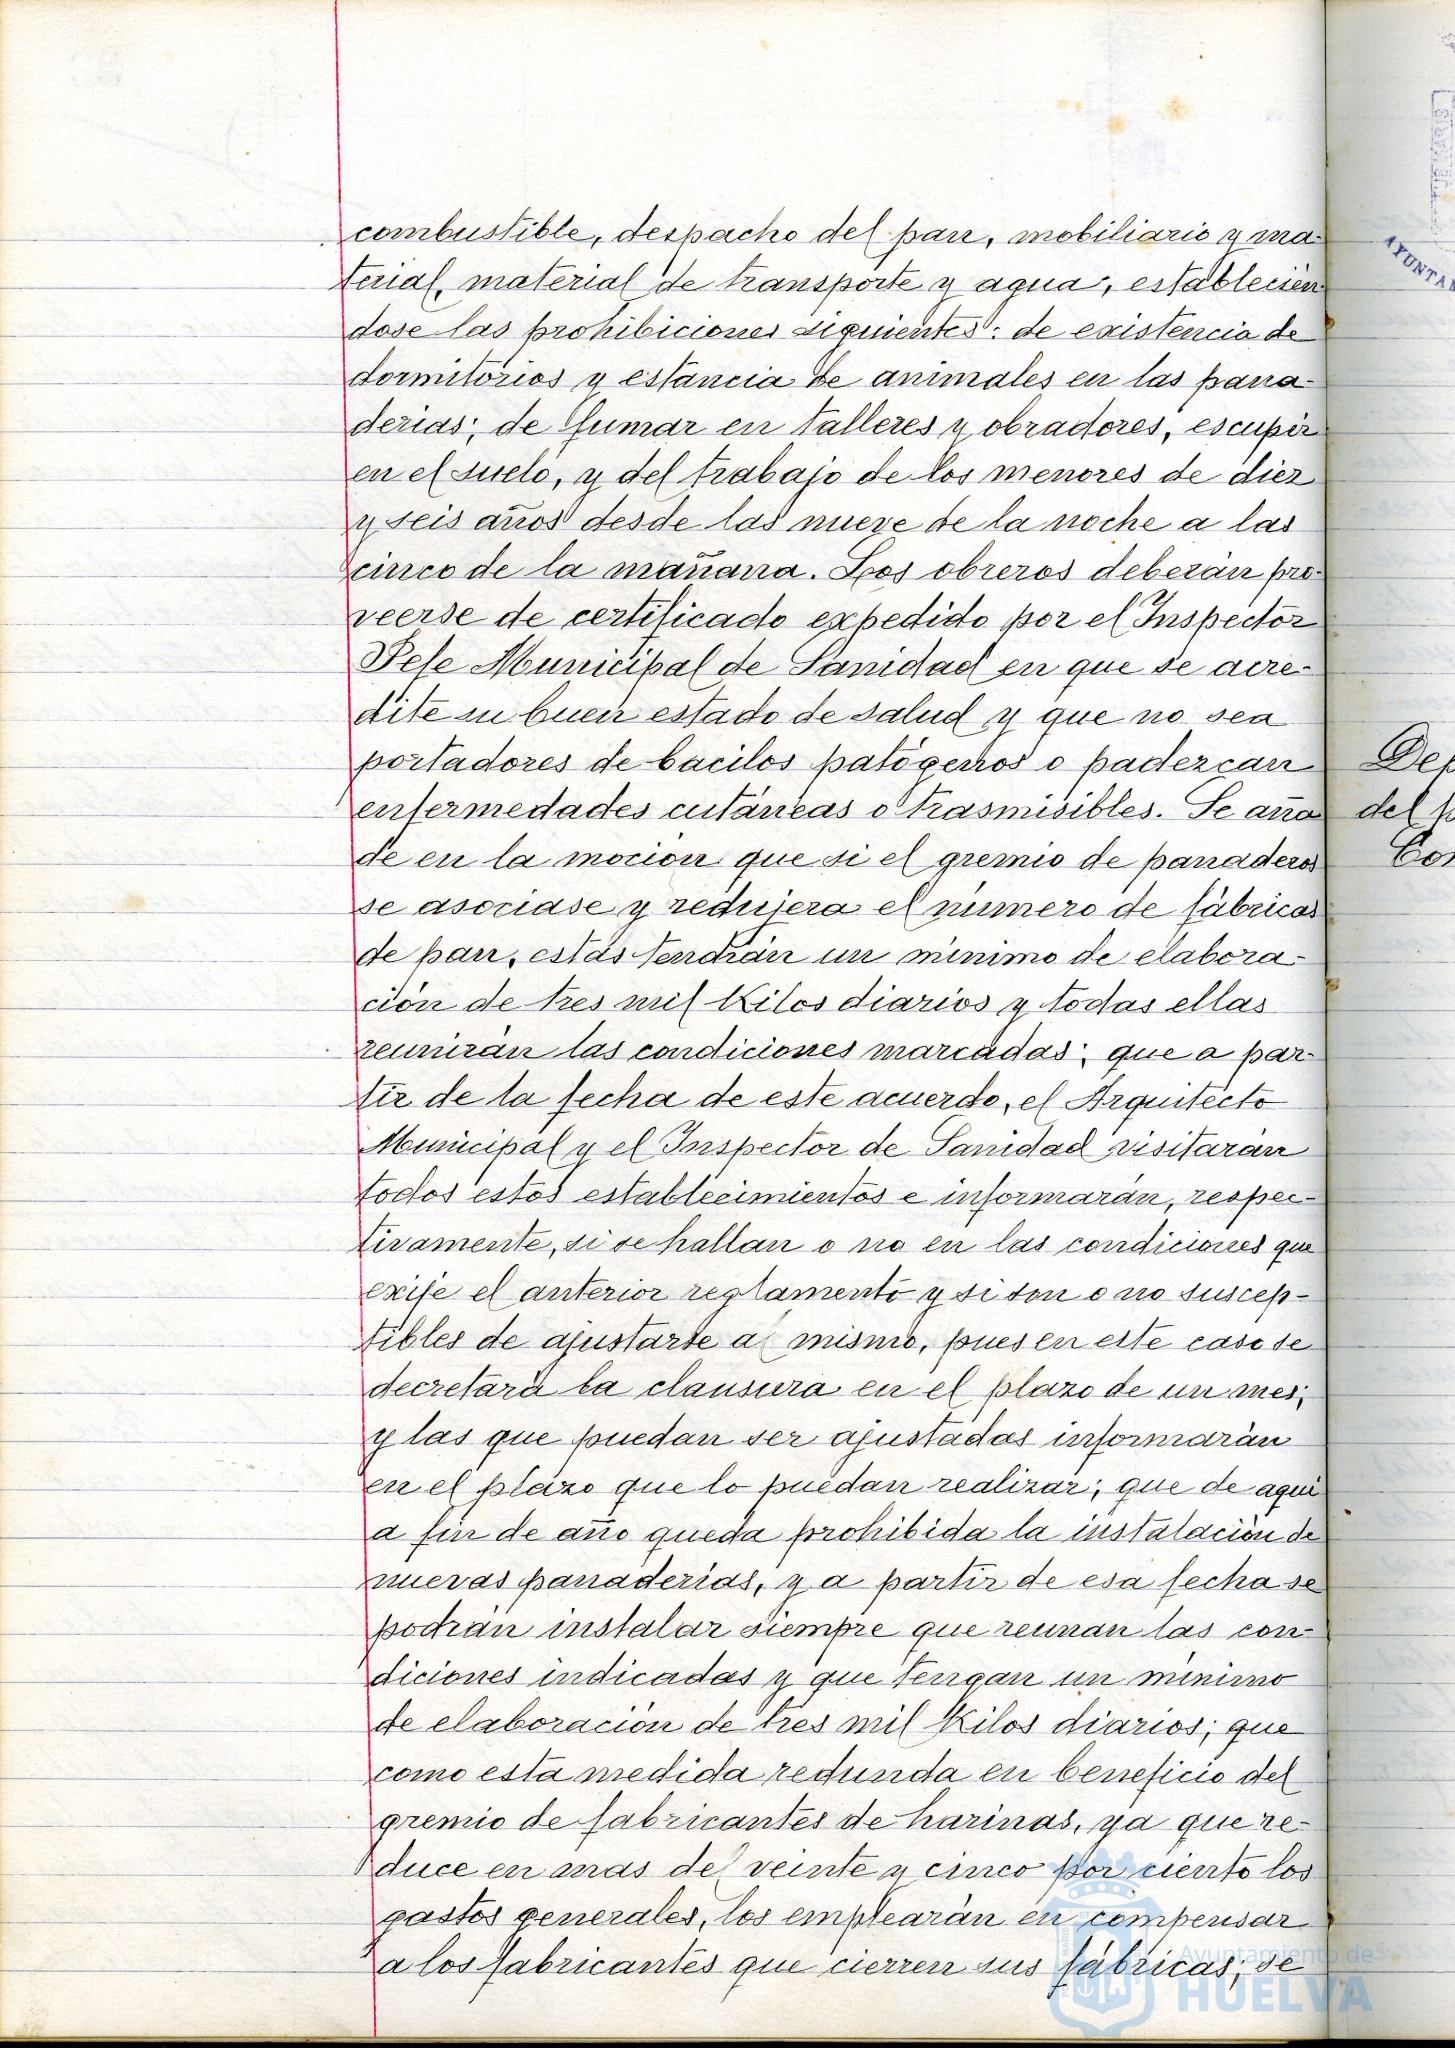 combustible, despacho del pan, mobiliario y ma-
terial, material de transporte y agua, establecién
dose las prohibiciones siguientes: de existencia de
dormitorios y estancia de animales en las pana-
derias; de fumar en talleres y obradores, escupir
en el suelo, y del trabajo de los menores de diez
y seis años desde las nueve de la noche a las
cinco de la mañana. Los obreros deberán pro-
veerse de certificado expedido por el Inspector
Jefe Municipal de Sanidad en que se acre-
dite su buen estado de salud y que no sea
portadores de bacilos patógenos o padezcan
enfermedades cutáneas o trasmisibles. Se aña
de en la moción que si el gremio de panaderos
se asociase y redujera el número de fábricas
de pan, estas tendrán un minimo de elabora-
ción de tres mil Kilos diarios y todas ellas
reunirán las condiciones marcadas; que a par-
tir de la fecha de este acuerdo, el Arquitecto
Municipal y el Inspector de Sanidad visitarán
todos estos establecimientos e informarán, respec-
tivamente, si se hallan o no en las condiciones que
exije el anterior reglamento y si son o no suscep-
tibles de ajustarse al mismo, pues en este caso se
decretará la clausura en el plazo de un mes;
y las que puedan ser ajustadas informarán
en el plazo que lo puedan realizar; que de aqui
a fin de año queda prohibida la instalación de
nuevas panaderias, y a partir de esa fecha se
podrán instalar siempre que reunan las con-
diciones indicadas y que tengan un minimo
de elaboración de tres mil Kilos diarios; que
como esta medida redunda en beneficio del
gremio de fabricantes de harinas, ya que re-
duce en mas del veinte y cinco por ciento los
gastos generales, los emplearán en compensar
a los fabricantes que cierren sus fábricas; se
AYUNTA
Dep
del p
Con
Ayuntamiento de
HUELVA